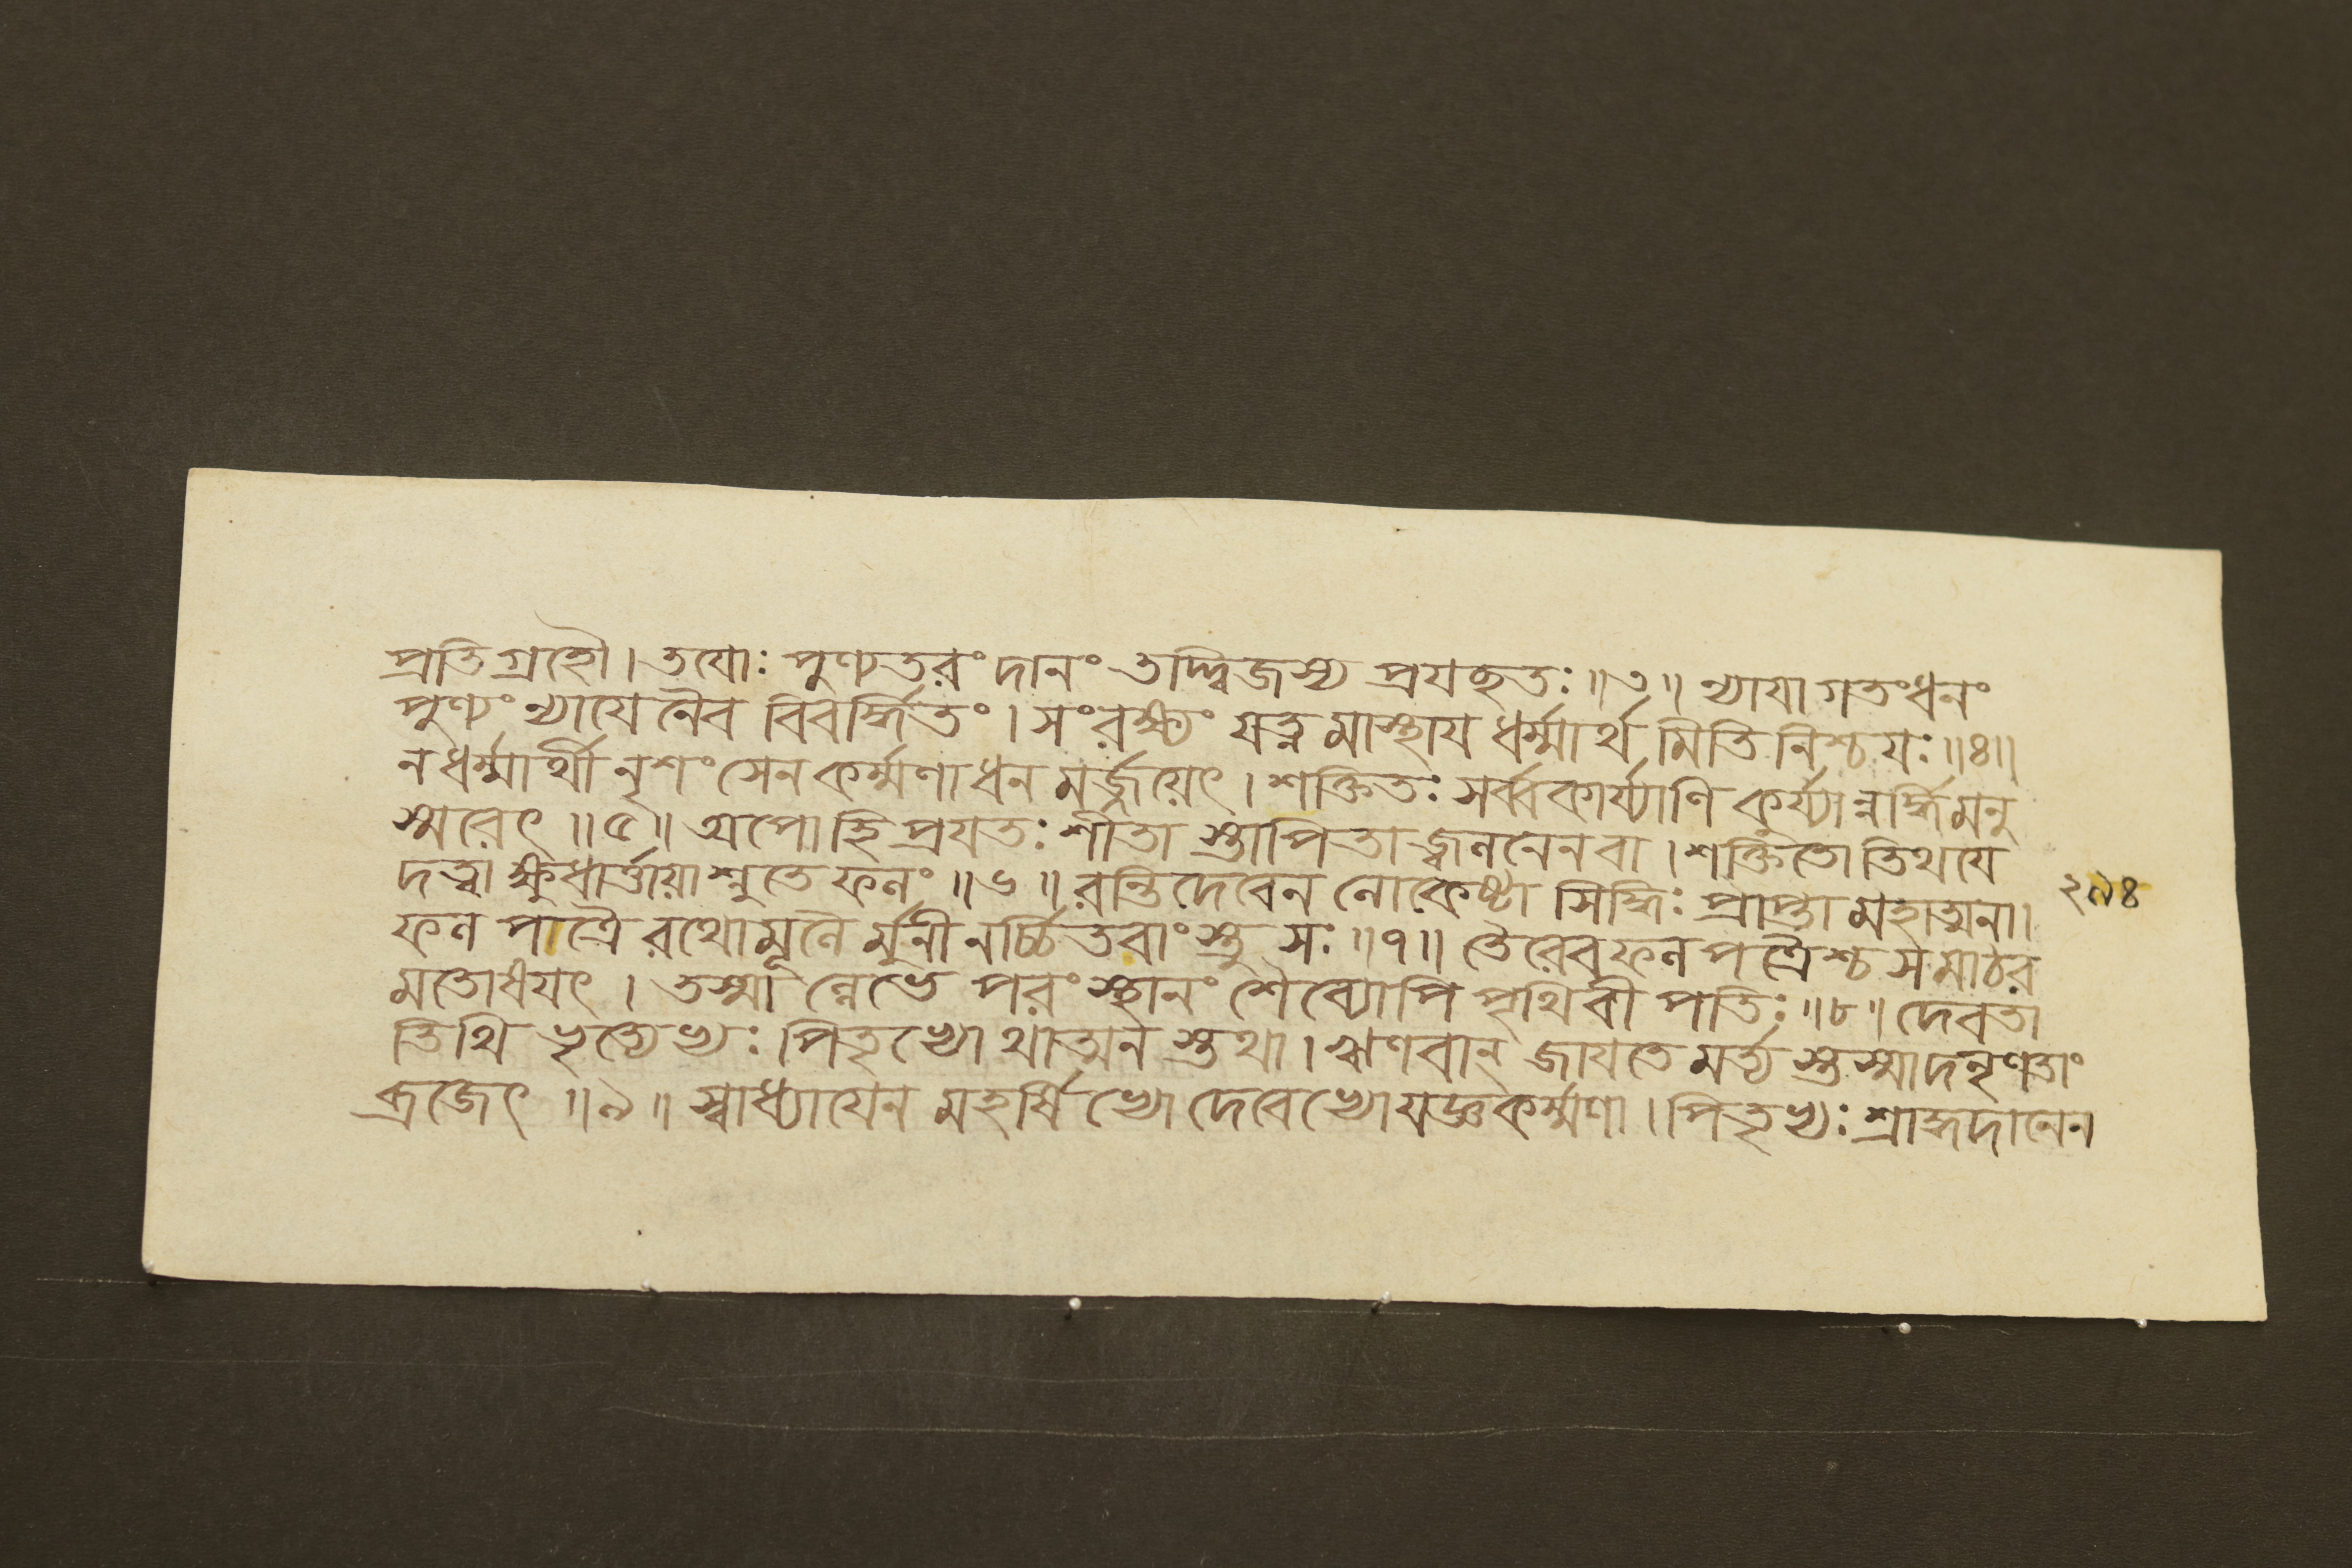 প্রতিগ্রহৌ। তযোঃ পুণ্যতরং দানং তদ্দ্বিজস্য প্রযচ্ছতঃ॥৩॥ ন্যাযাগতংধনং
পুণ্যং ন্যাযেনৈব বিবর্দ্ধিতং। সংরক্ষ্যং যত্নমাস্থায ধর্ম্মার্থমিতি নিশ্চযঃ॥৪॥
নধর্ম্মার্থী নৃশংসেন কর্ম্মণাধনমর্জ্জয়েৎ। শক্তিতঃ সর্ব্বকার্য্যাণি কুর্য্যান্নর্দ্ধিমনু
স্মরেৎ॥৫॥ অপোহিপ্রযতঃ শীতা স্তাপিতাজ্বাননেনবা। শক্তিতোতিথযে
দত্বা ক্ষুধার্ত্তায়াশ্নুতে ফলং॥৬॥ রন্তিদেবেন লোকেষ্টা সিদ্ধিঃ প্রাপ্তা মহাত্মনা।
ফল পাত্রৈরথোমূলৈর্মুনীনর্চ্চিতবাংস্তু সঃ॥৭॥ তৈরেবফলপত্রৈশ্চ সমাঠর
মতোষযৎ। তস্মাল্লেভে পরং স্থানং শৈব্যোপি পৃথিবী পতিঃ॥৮॥ দেবতা
তিথি ভৃত্যেভ্যঃ পিতৃভ্যোথাত্মন স্তথা। ঋণবান্ জাযতে মর্ত্ত্য স্তস্মাদনৃণতাং
ব্রজেৎ॥৯॥ স্বাধ্যাযেন মহর্ষিভ্যো দেবেভ্যোযজ্ঞকর্ম্মণা। পিতৃভ্যঃ শ্রাদ্ধদানেন
২৯৪